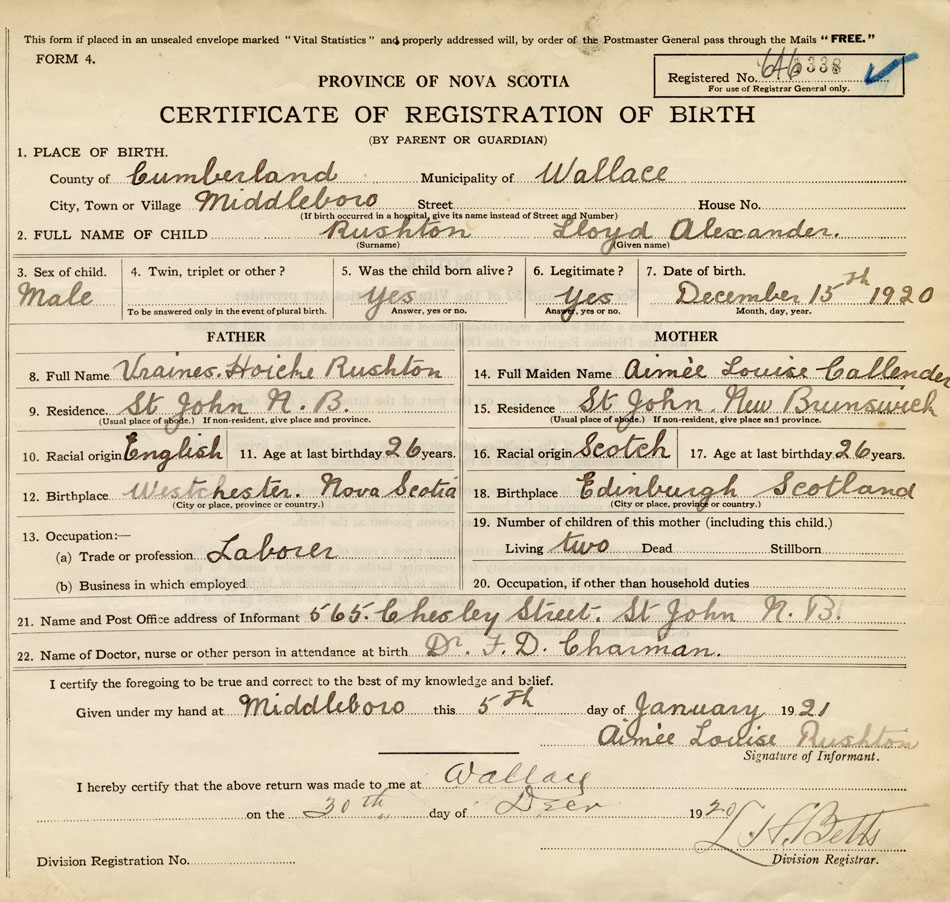 This form if placed in an unsealed envelope marked "Vital Statistics" and properly addressed will, by order of the Postmaster General pass through the Mails "FREE."
FORM 4.
PROVINCE OF NOVA SCOTIA
Registered No. 646338
For use of Registrar General only.
CERTIFICATE OF REGISTRATION OF BIRTH
(BY PARENT OR GUARDIAN)
1. PLACE OF BIRTH.
County of Cumberland Municipality of Wallace
City, Town or Village Middleboro Street House No.
(If birth occurred in a hospital, give its name instead of Street and Number)
2. FULL NAME OF CHILD Rushton Lloyd Alexander.
(Surname) (Given name)
3. Sex of child. 4. Twin, triplet or other? 5. Was the child born alive? 6. Legitimate? 7. Date of birth.
Male Yes Yes December 15th 1920
To be answered only in the event of plural birth. Answer, yes or no. Answer, yes or no. Month, day, year.
FATHER MOTHER
8. Full Name Vraines. Hoiche Rushton 14. Full Maiden Name Aimée Louise Callender
9. Residence. St John N. B. 15. Residence St John. New Brunswick
(Usual place of abode.) If non-resident, give place and province. (Usual place of abode.) If non-resident, give place and province.
10. Racial origin English 11. Age at last birthday 26 years. 16. Racial origin Scotch 17. Age at last birthday 26 years.
12. Birthplace Westchester. Nova Scotia 18. Birthplace Edinburgh Scotland
(City or place, province or country.) (City or place, province or country.)
13. Occupation:— 19. Number of children of this mother (including this child.)
(a) Trade or profession Laborer Living two Dead Stillborn
(b) Business in which employed 20. Occupation, if other than household duties
21. Name and Post Office address of Informant 565. Chesley Street. St John N. B.
22. Name of Doctor, nurse or other person in attendance at birth Dr. F. D. Charman.
I certify the foregoing to be true and correct to the best of my knowledge and belief.
Given under my hand at Middleboro this 5th day of January 1921
Aimée Louise Rushton
Signature of Informant.
I hereby certify that the above return was made to me at Wallace
on the 30th day of Decr 1920
L. H. Betts
Division Registration No. Division Registrar.